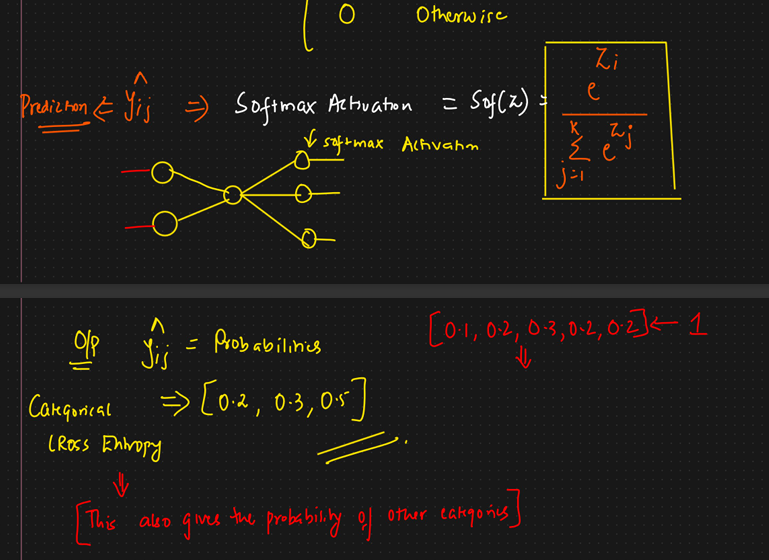 0 Otherwise
Prediction ⇐ ŷij ⇒ Softmax Activation = Sof(z) = e^zi / Σ j=1 k e^zj
↓ softmax Activatn
O/p ŷij = Probabilities
[0.1, 0.2, 0.3, 0.2, 0.2] ← 1
⇓
Categorical ⇒ [0.2, 0.3, 0.5]
Cross Entropy
⇓
[This also gives the probability of other categories]